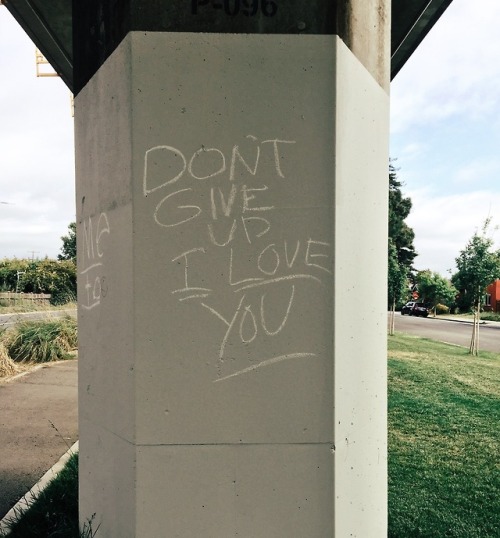 P-096
DON'T
GIVE
UP
I LOVE
YOU